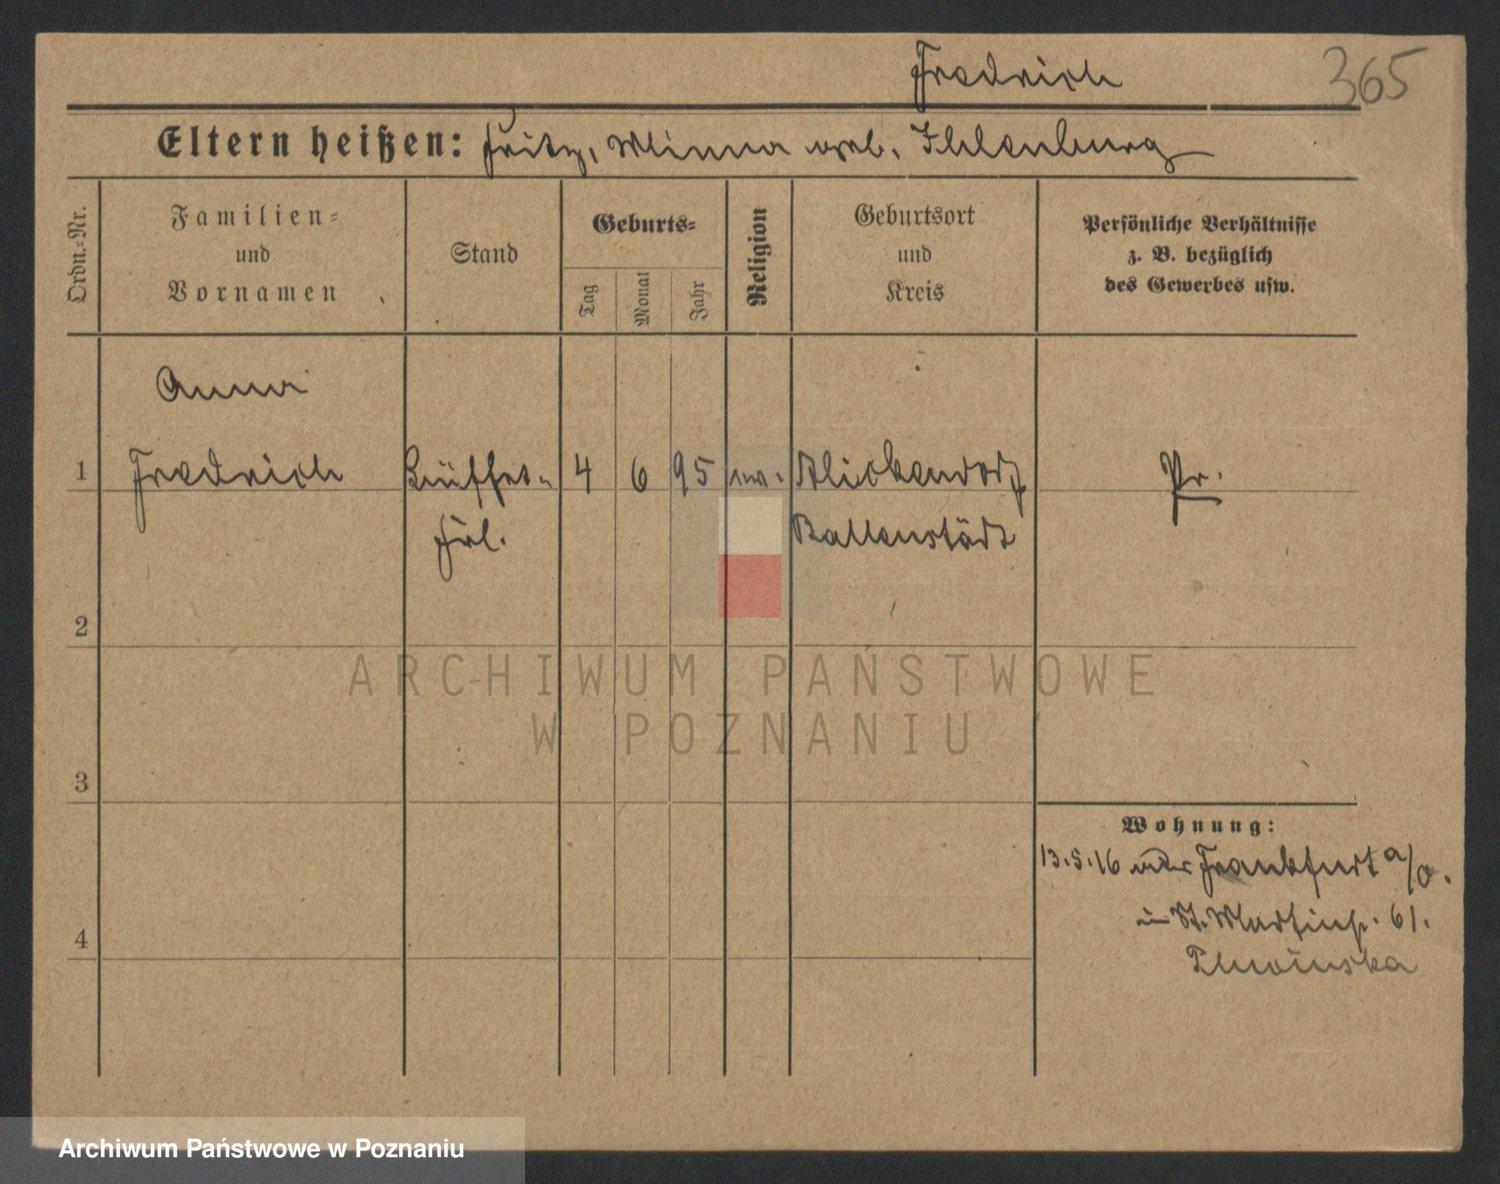 Fredrich
365
Eltern heißen: Fritz, Minna geb. Ihlenburg
Ordn.-Nr.
Familien-
und
Vornamen
Stand
Geburts-
Tag
Monat
Jahr
Religion
Geburtsort
und
Kreis
Persönliche Verhältnisse
z. B. bezüglich
des Gewerbes usw.
Anna
1 Fredrich Büffet- 4 6 95 ev. Pr.
frl. Ballenstädt
2
3
4
Wohnung:
13.5.16 Frankfurt a/O.
St. Martinstr. 61.
ARCHIWUM PAŃSTWOWE
W POZNANIU
Archiwum Państwowe w Poznaniu